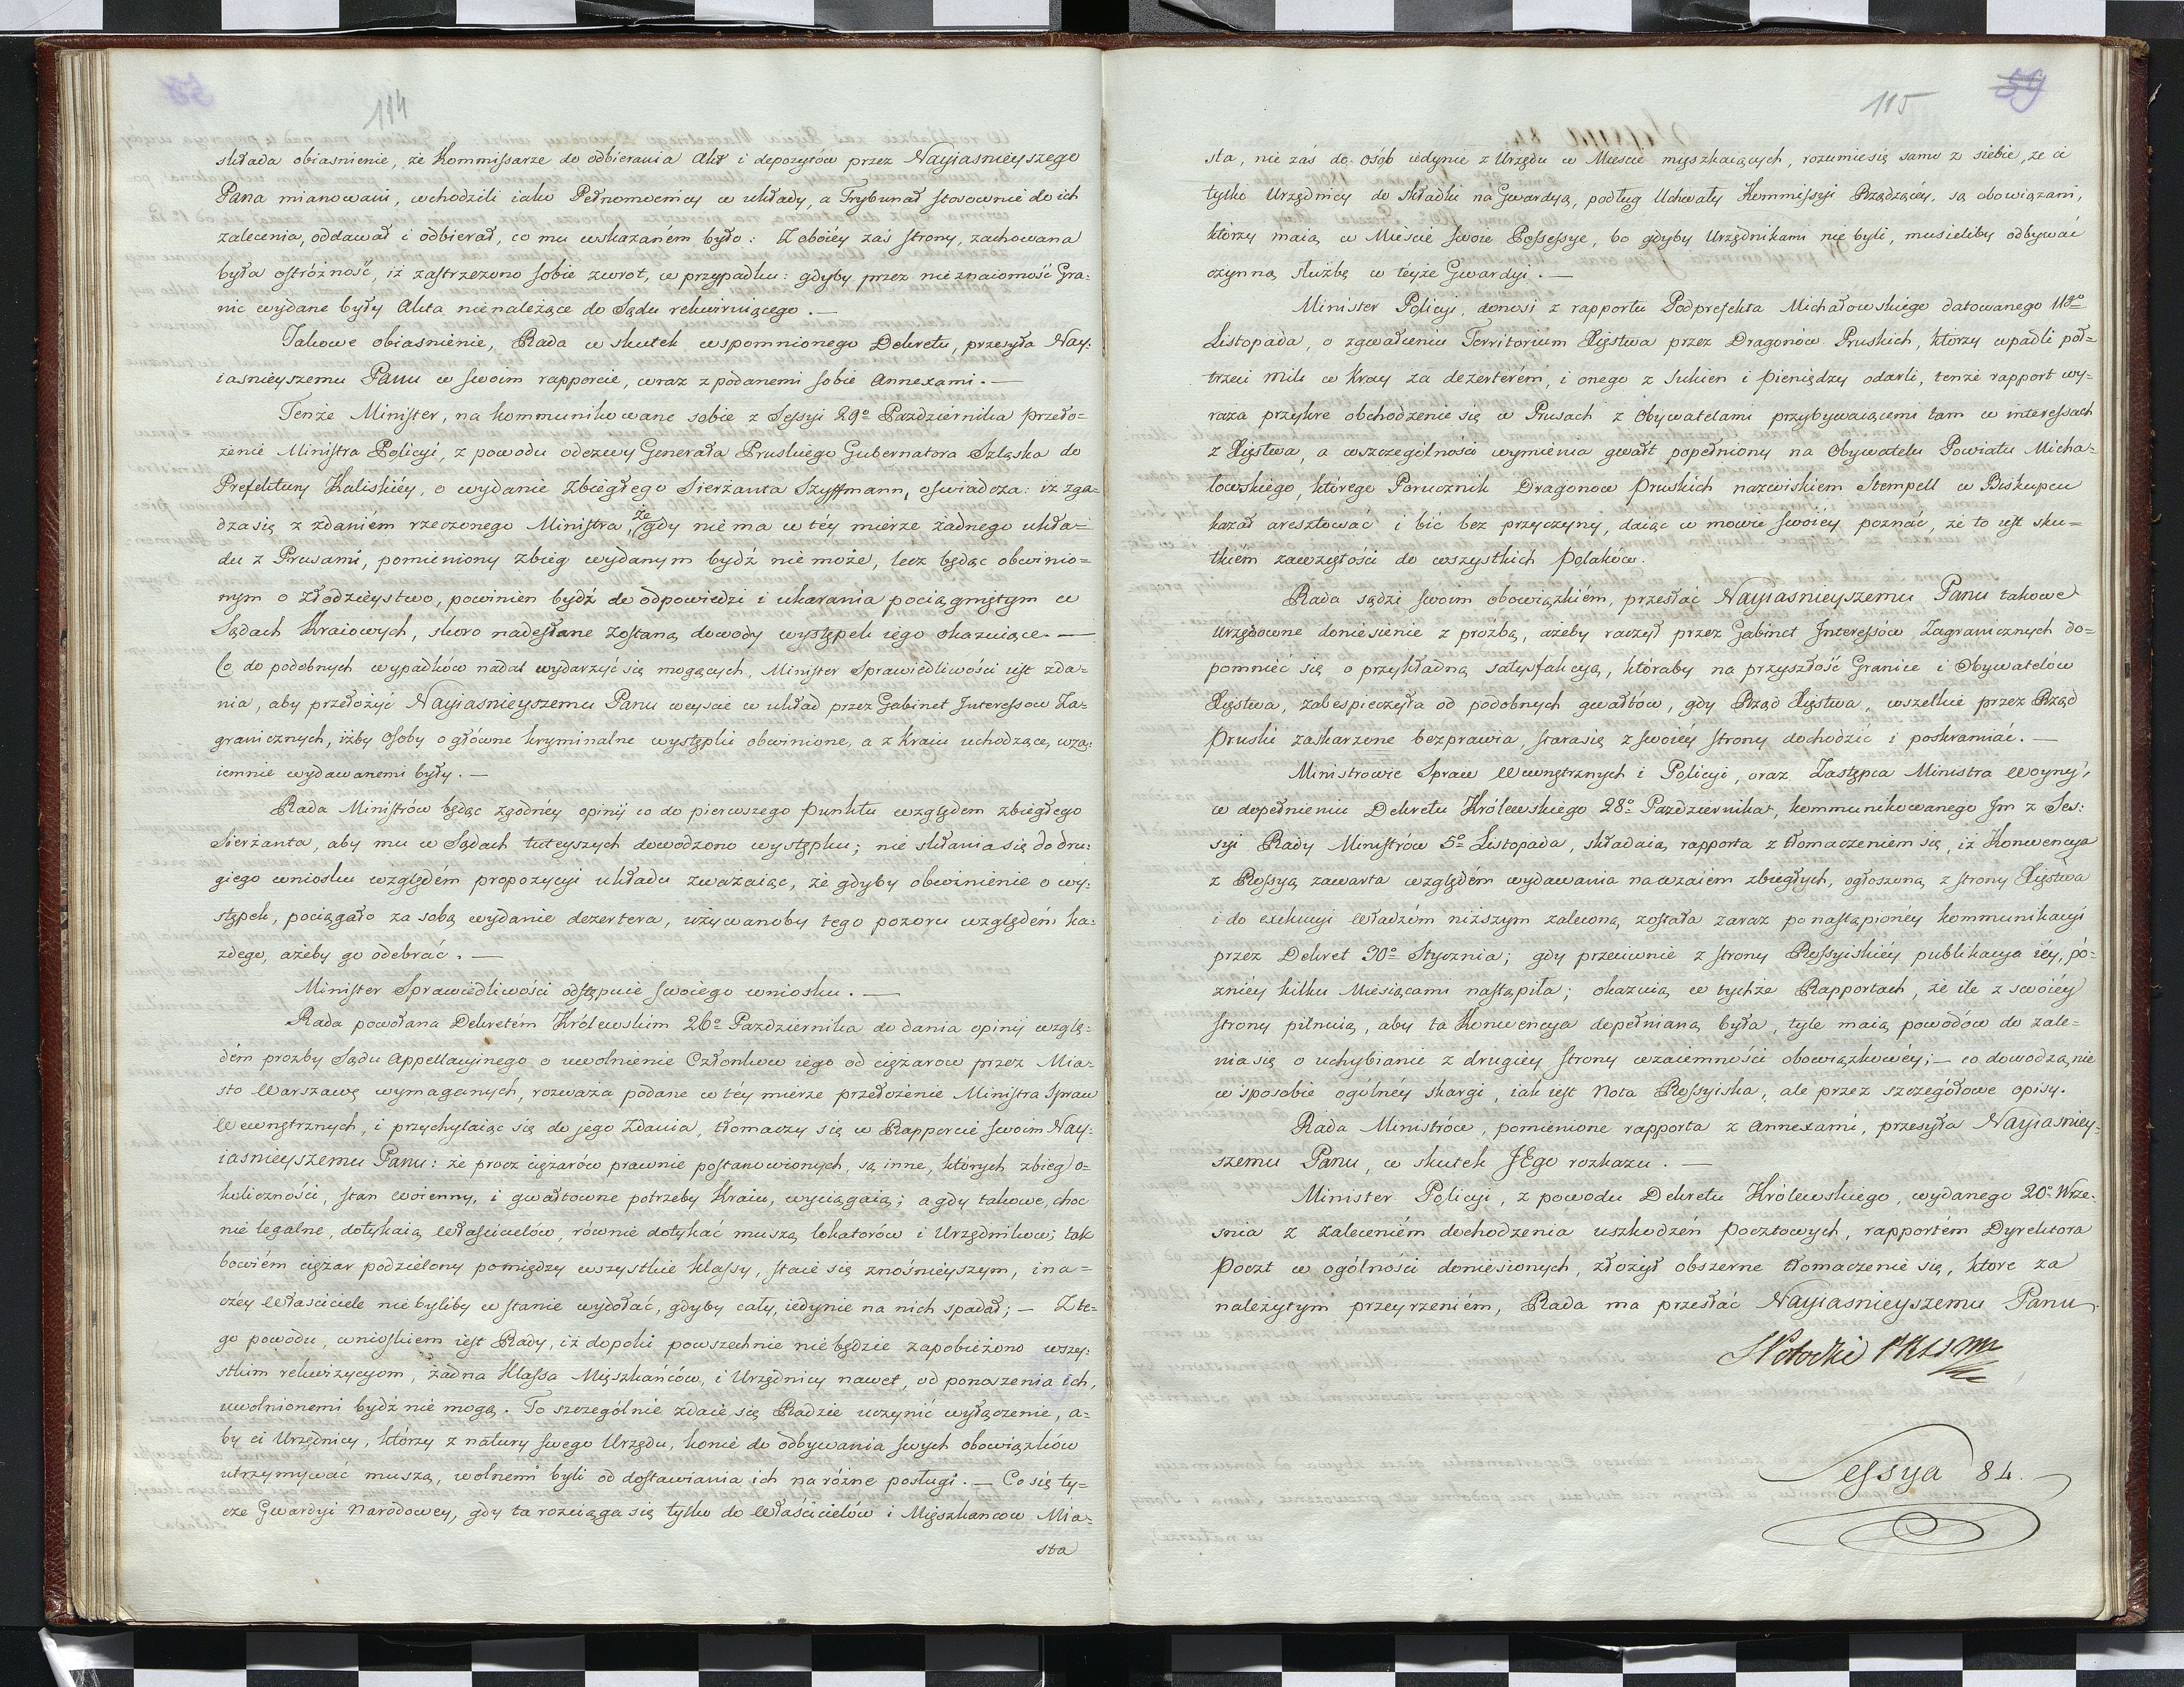 114
składa obiasnienie, że Kommissarze do odbierania Akt i depozytów przez Nayiasnieyszego
Pana mianowani, wchodzili iako Pełnomocnicy w układy, a Trybunał stosownie do ich
zalecenia, oddawał i odbierał, co mu wskazaném było: Z oboiéy zaś strony, zachowana
była ostróżność, iż zastrzeżono sobie zwrot, w przypadku: gdyby przez nieznaiomość Gra-
nic wydane były Akta nienależące do Sądu rekwiruiącego. —
Takowe obiasnienie, Rada w skutek wspomnionego Dekretu, przesyła Nay:
iasnieyszemu Panu w swoim rapporcie, wraz z podanemi sobie Annexami. —
Tenże Minister, na kommunikowane sobie z Sessyi 29º Pazdziernika przeło=
żenie Ministra Policyi, z powodu odezwy Generała Pruskiego Gubernatora Szląska do
Prefektury Kaliskiéy, o wydanie Zbiegłego Sierżanta Szyffmann, oswiadcza: iż zga-
dza się z zdaniém rzeczonego Ministra, że gdy nie ma w téy mierze żadnego ukła=
du z Prusami, pomieniony zbieg wydanym bydź nie może, lecz będąc obwinio=
nym o złodzieystwo, powinien bydź do odpowiedzi i ukarania pociągniętym w
Sądach Kraiowych, skoro nadesłane zostaną dowody występek iego okazuiące. —
Co do podobnych wypadków nadal wydarzyć się mogących, Minister Sprawiedliwości iest zda=
nia, aby przełożyć Nayiasnieyszemu Panu weyście w układ przez Gabinet Interessow Za=
granicznych, iżby osoby o główne kryminalne występki obwinione, a z Kraiu uchodzące, wza:
iemnie wydawanemi były. —
Rada Ministrów będąc zgodnéy opinij co do pierwszego punktu względem zbiegłego
Sierżanta, aby mu w Sądach tuteyszych dowodzono występku; nie skłania się do dru:
giego wniosku względém propozycyi układu zważaiąc, że gdyby obwinienie o wy:
stępek, pociągało za sobą wydanie dezertera, używanoby tego pozoru względém ka:
żdego, ażeby go odebrać. —
Minister Sprawiedliwości odstępuie swoiego wniosku. —
Rada powołana Dekretém Królewskim 26º Pazdziernika do dania opinij wzglę:
dém prozby Sądu Appellacyinego o uwolnienie Członkow iego od ciężarow przez Mia:
sto Warszawę wymaganych, rozważa podane w téy mierze przełożenie Ministra Spraw
Wewnętrznych, i przychylaiąc się do jego Zdania, tłomaczy się w Rapporcie swoim Nay:
iasnieyszemu Panu: że procz ciężarów prawnie postanowionych, są inne, których zbieg o=
koliczności, stan woienny, i gwałtowne potrzeby Kraiu, wyciągaią; a gdy takowe, choc
nie legalne, dotykaią Właścicielów, równie dotykać muszą lokatorów i Urzędnikow; tak
bowiém ciężar podzielony pomiędzy wszystkie klassy, staie się znośnieyszym, ina=
czéy Właściciele nie byliby w stanie wydołać, gdyby cały, iedynie na nich spadał; — Z te=
go powodu, wnioskiem iest Rady, iż dopoki powszechnie nie będzie zapobieżono wszy:
stkim rekwizycyom, żadna Klassa Mięszkańców, i Urzędnicy nawet, od ponoszenia ich,
uwolnionemi bydź nie mogą. To szczególnie zdaie się Radzie uczynić wyłączenie, a=
by ci Urzędnicy, którzy z natury swego Urzędu, konie do odbywania swych obowiązków
utrzymywać muszą, wolnemi byli od dostawiania ich na różne posługi. — Co się ty=
cze Gwardyi Narodowey, gdy ta rozciąga się tylko do Właścicielów i Mięszkancow Mia=
sta
115
59
sta, nie zaś do osób iedynie z Urzędu w Miescie myszkaiących, rozumie się samo z siebie, że ci
tylko Urzędnicy do składki na Gwardyą, podług Uchwały Kommissyi Rządzącéy, są obowiązani,
którzy maią w Mieście swoie Possessye, bo gdyby Urzędnikami nie byli, musieliby odbywać
czynną służbę w téyże Gwardyi. —
Minister Policyi, donosi z rapportu Podprefekta Michałowskiego datowanego 11go
Listopada, o zgwałceniu Territorium Xięstwa przez Dragonów Pruskich, którzy wpadli pół=
trzeci mili w Kray za dezerterém, i onego z sukien i pieniędzy odarli, tenże rapport wy=
raża przykre obchodzenie się w Prusach z Obywatelami przybywaiącemi tam w interessach
z Xięstwa, a wszczególności wymienia gwałt popełniony na Obywatelu Powiatu Micha=
łowskiego, którego Porucznik Dragonow Pruskich nazwiskiem Stempell w Biskupcu
kazał aresztować i bić bez przyczyny, daiąc w mowie swoiéy poznać, że to iest sku=
tkiém zawziętości do wszystkich Polaków.
Rada sądzi swoim obowiązkiém, przesłać Nayiasnieyszemu Panu takowe
urzędowne doniesienie z proźbą, ażeby raczył przez Gabinet Interessów Zagranicznych do=
pomnieć się o przykładną satysfakcyą, któraby na przyszłość Granice i Obywatelów
Xięstwa, zabespieczyła od podobnych gwałtów, gdy Rząd Xięstwa, wszelkie przez Rząd
Pruski zaskarżone bezprawia, stara się z swoiéy strony dochodzić i poskramiać. —
Ministrowie Spraw Wewnętrznych i Policyi, oraz Zastępca Ministra Woyny,
w dopełnieniu Dekretu Królewskiego 28º Pazdziernika, kommunikowanego Im z Ses:
syi Rady Ministrów 5º Listopada, składaią rapporta z tłomaczeniem się, iż Konwencya
z Rossyą zawarta względém wydawania nawzaiém zbiegłych, ogłoszoną z strony Xięstwa
i do exekucyi Władzóm niższym zaleconą, została zaraz po nastąpionéy kommunikacyi
przez Dekret 30º Stycznia; gdy przeciwnie z strony Rossyiskiéy publikacya iéy, pó=
zniéy kilku Miesiącami nastąpiła; okazuią w tychże Rapportach, że ile z swoiéy
strony pilnuią, aby ta Konwencya dopełnianą była, tyle maią powodów do żale=
nia się o uchybianie z drugiey strony wzaiemności obowiązkowéy; — co dowodzą nie
w sposobie ogólnéy skargi, iak iest Nota Rossyiska, ale przez szczegółowe opisy.
Rada Ministrów, pomienione rapporta z Annexami, przesyła Nayiasniey=
szemu Panu, w skutek JEgo rozkazu. —
Minister Policyi, z powodu Dekretu Królewskiego, wydanego 20º Wrze=
snia z zaleceniém dochodzenia uszkodzeń pocztowych, rapportém Dyrektora
Poczt w ogólności doniesionych, złożył obszerne tłomaczenie się, które za
należytym przeyrzeniém, Rada ma przesłać Nayiasnieyszemu Panu.
Sessya 84.